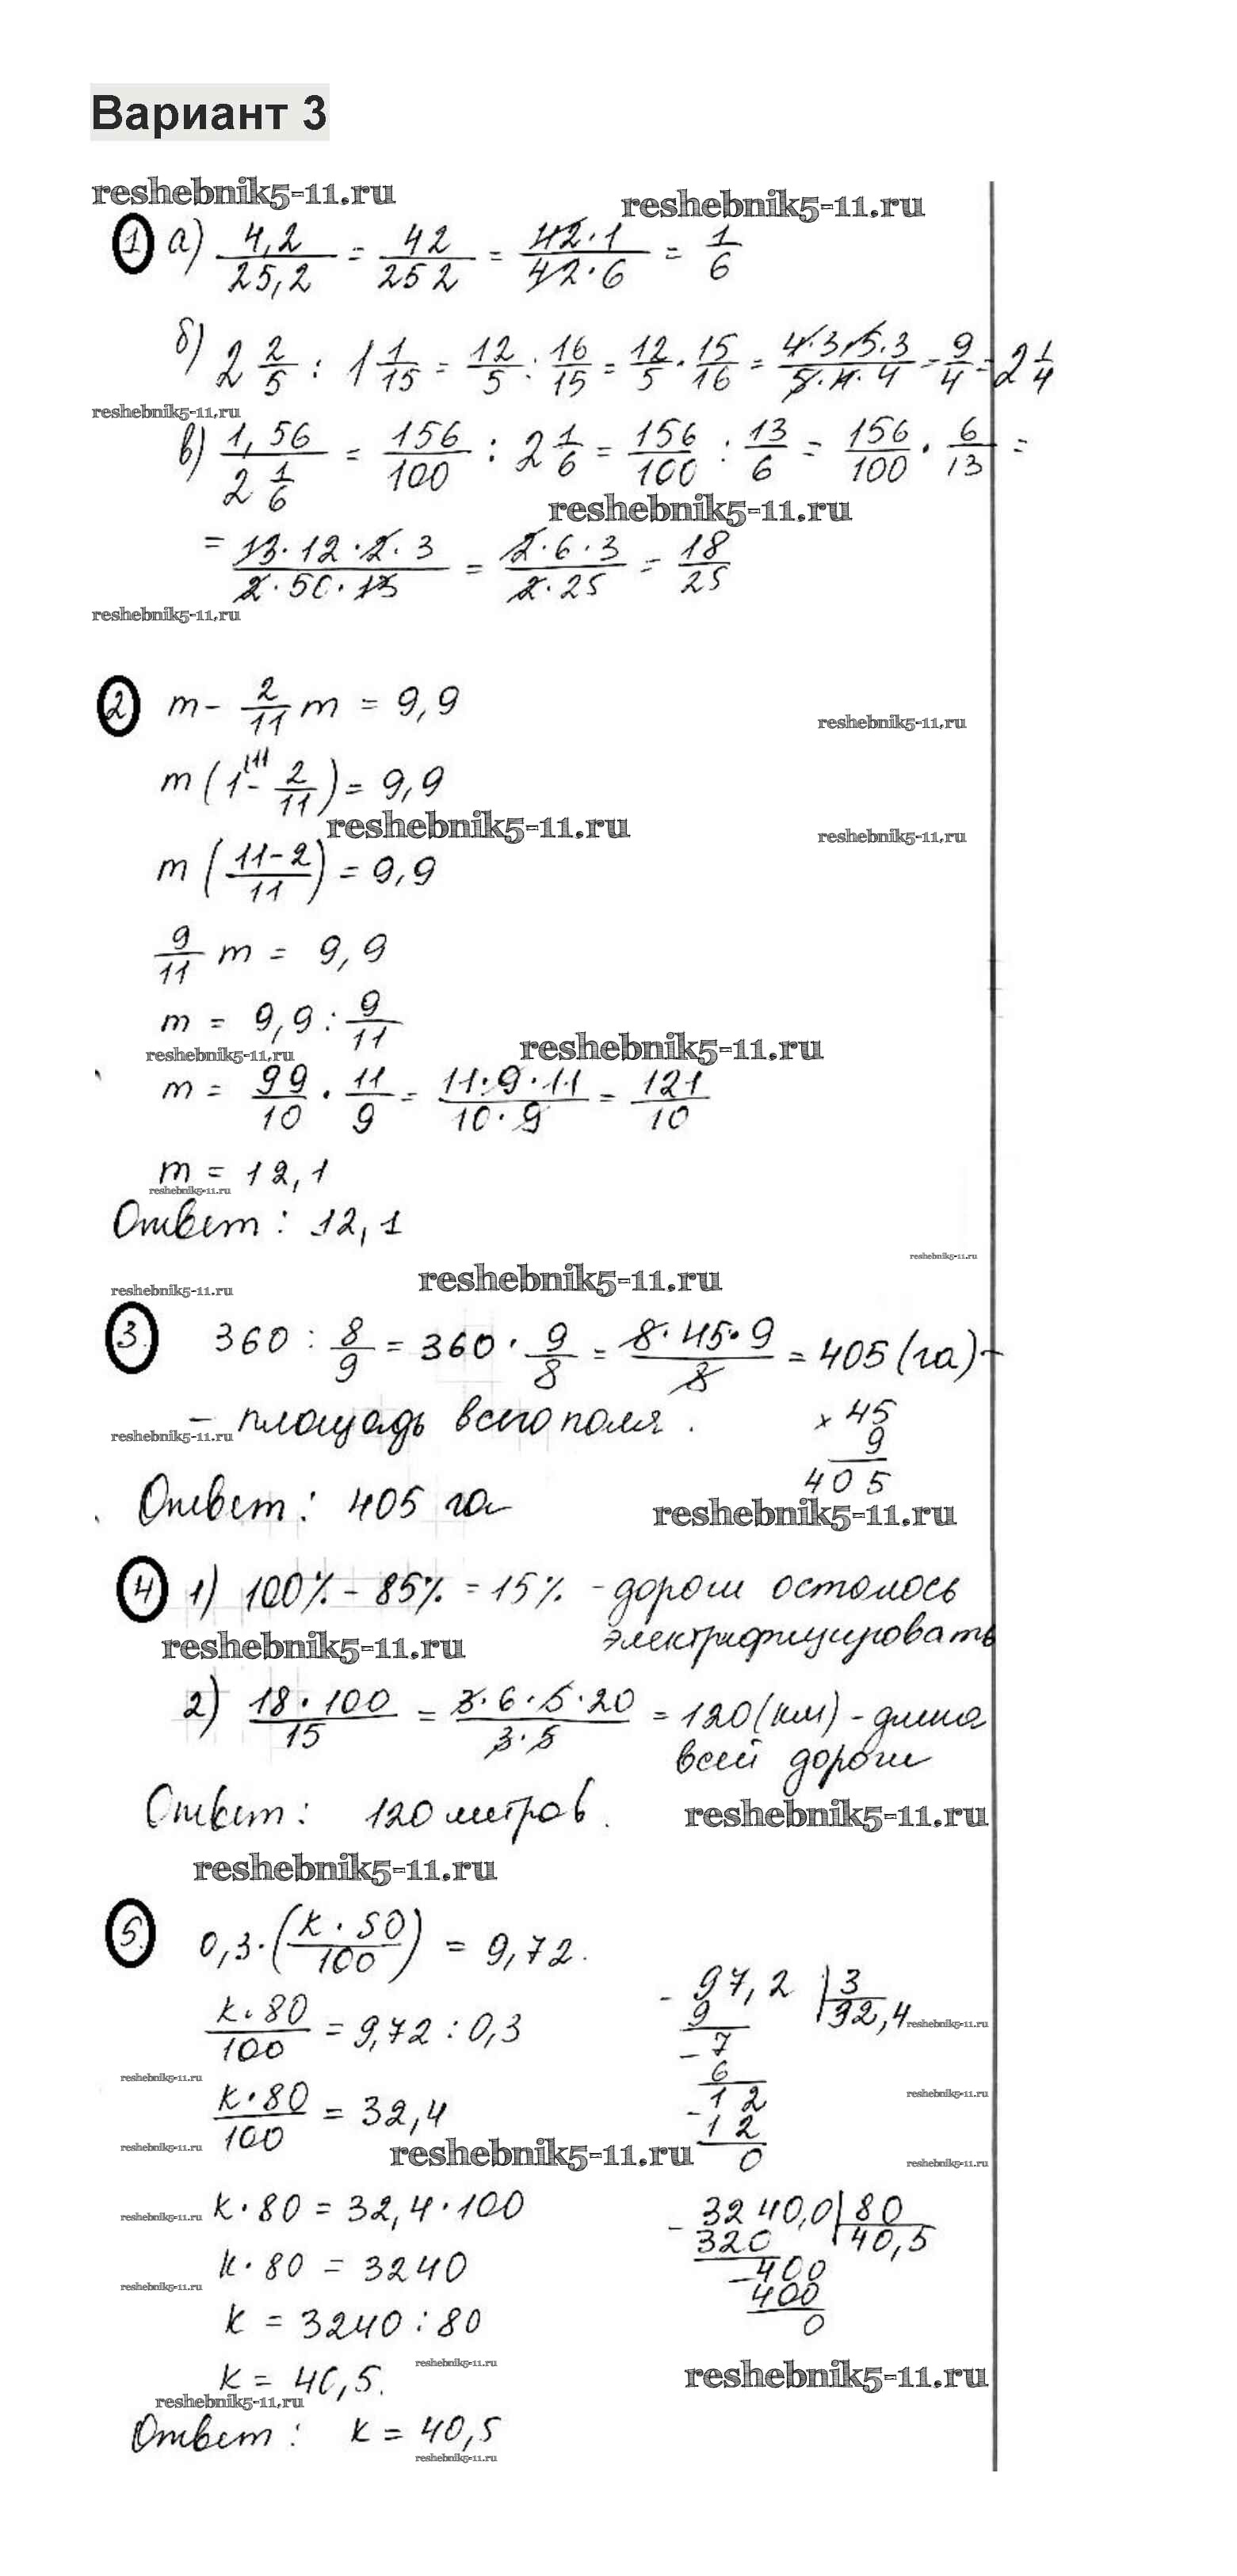 Вариант 3
reshebnik5-11.ru
reshebnik5-11.ru
1 а) 4,2/25,2 = 42/252 = 42·1/42·6 = 1/6
б) 2 2/5 : 1 1/15 = 12/5 : 16/15 = 12/5 · 15/16 = 4·3·5·3/5·4·4 = 9/4 = 2 1/4
reshebnik5-11.ru
в) 1,56/2 1/6 = 156/100 : 2 1/6 = 156/100 : 13/6 = 156/100 · 6/13 =
reshebnik5-11.ru
= 13·12·2·3/2·50·13 = 2·6·3/2·25 = 18/25
reshebnik5-11.ru
2 m - 2/11 m = 9,9
reshebnik5-11.ru
m (1 - 2/11) = 9,9
reshebnik5-11.ru
reshebnik5-11.ru
m (11-2/11) = 9,9
9/11 m = 9,9
m = 9,9 : 9/11
reshebnik5-11.ru
reshebnik5-11.ru
m = 99/10 · 11/9 = 11·9·11/10·9 = 121/10
m = 12,1
reshebnik5-11.ru
Ответ: 12,1
reshebnik5-11.ru
reshebnik5-11.ru
reshebnik5-11.ru
3. 360 : 8/9 = 360 · 9/8 = 8·45·9/8 = 405 (га) -
- площадь всего поля.
reshebnik5-11.ru
× 45
9
405
Ответ: 405 га
reshebnik5-11.ru
4 1) 100% - 85% = 15% - дороги осталось
электрифицировать
reshebnik5-11.ru
2) 18·100/15 = 3·6·5·20/3·5 = 120 (км) - длина
всей дороги
Ответ: 120 метров.
reshebnik5-11.ru
reshebnik5-11.ru
5. 0,3·(k·50/100) = 9,72.
k·80/100 = 9,72 : 0,3
- 97,2 | 3
9 32,4
reshebnik5-11.ru
- 7
6
- 12
12
0
reshebnik5-11.ru
reshebnik5-11.ru
k·80/100 = 32,4
reshebnik5-11.ru
reshebnik5-11.ru
reshebnik5-11.ru
reshebnik5-11.ru
k·80 = 32,4·100
- 3240,0 | 80
320 40,5
- 400
400
0
k·80 = 3240
reshebnik5-11.ru
k = 3240 : 80
k = 40,5.
reshebnik5-11.ru
reshebnik5-11.ru
reshebnik5-11.ru
Ответ: k = 40,5
reshebnik5-11.ru